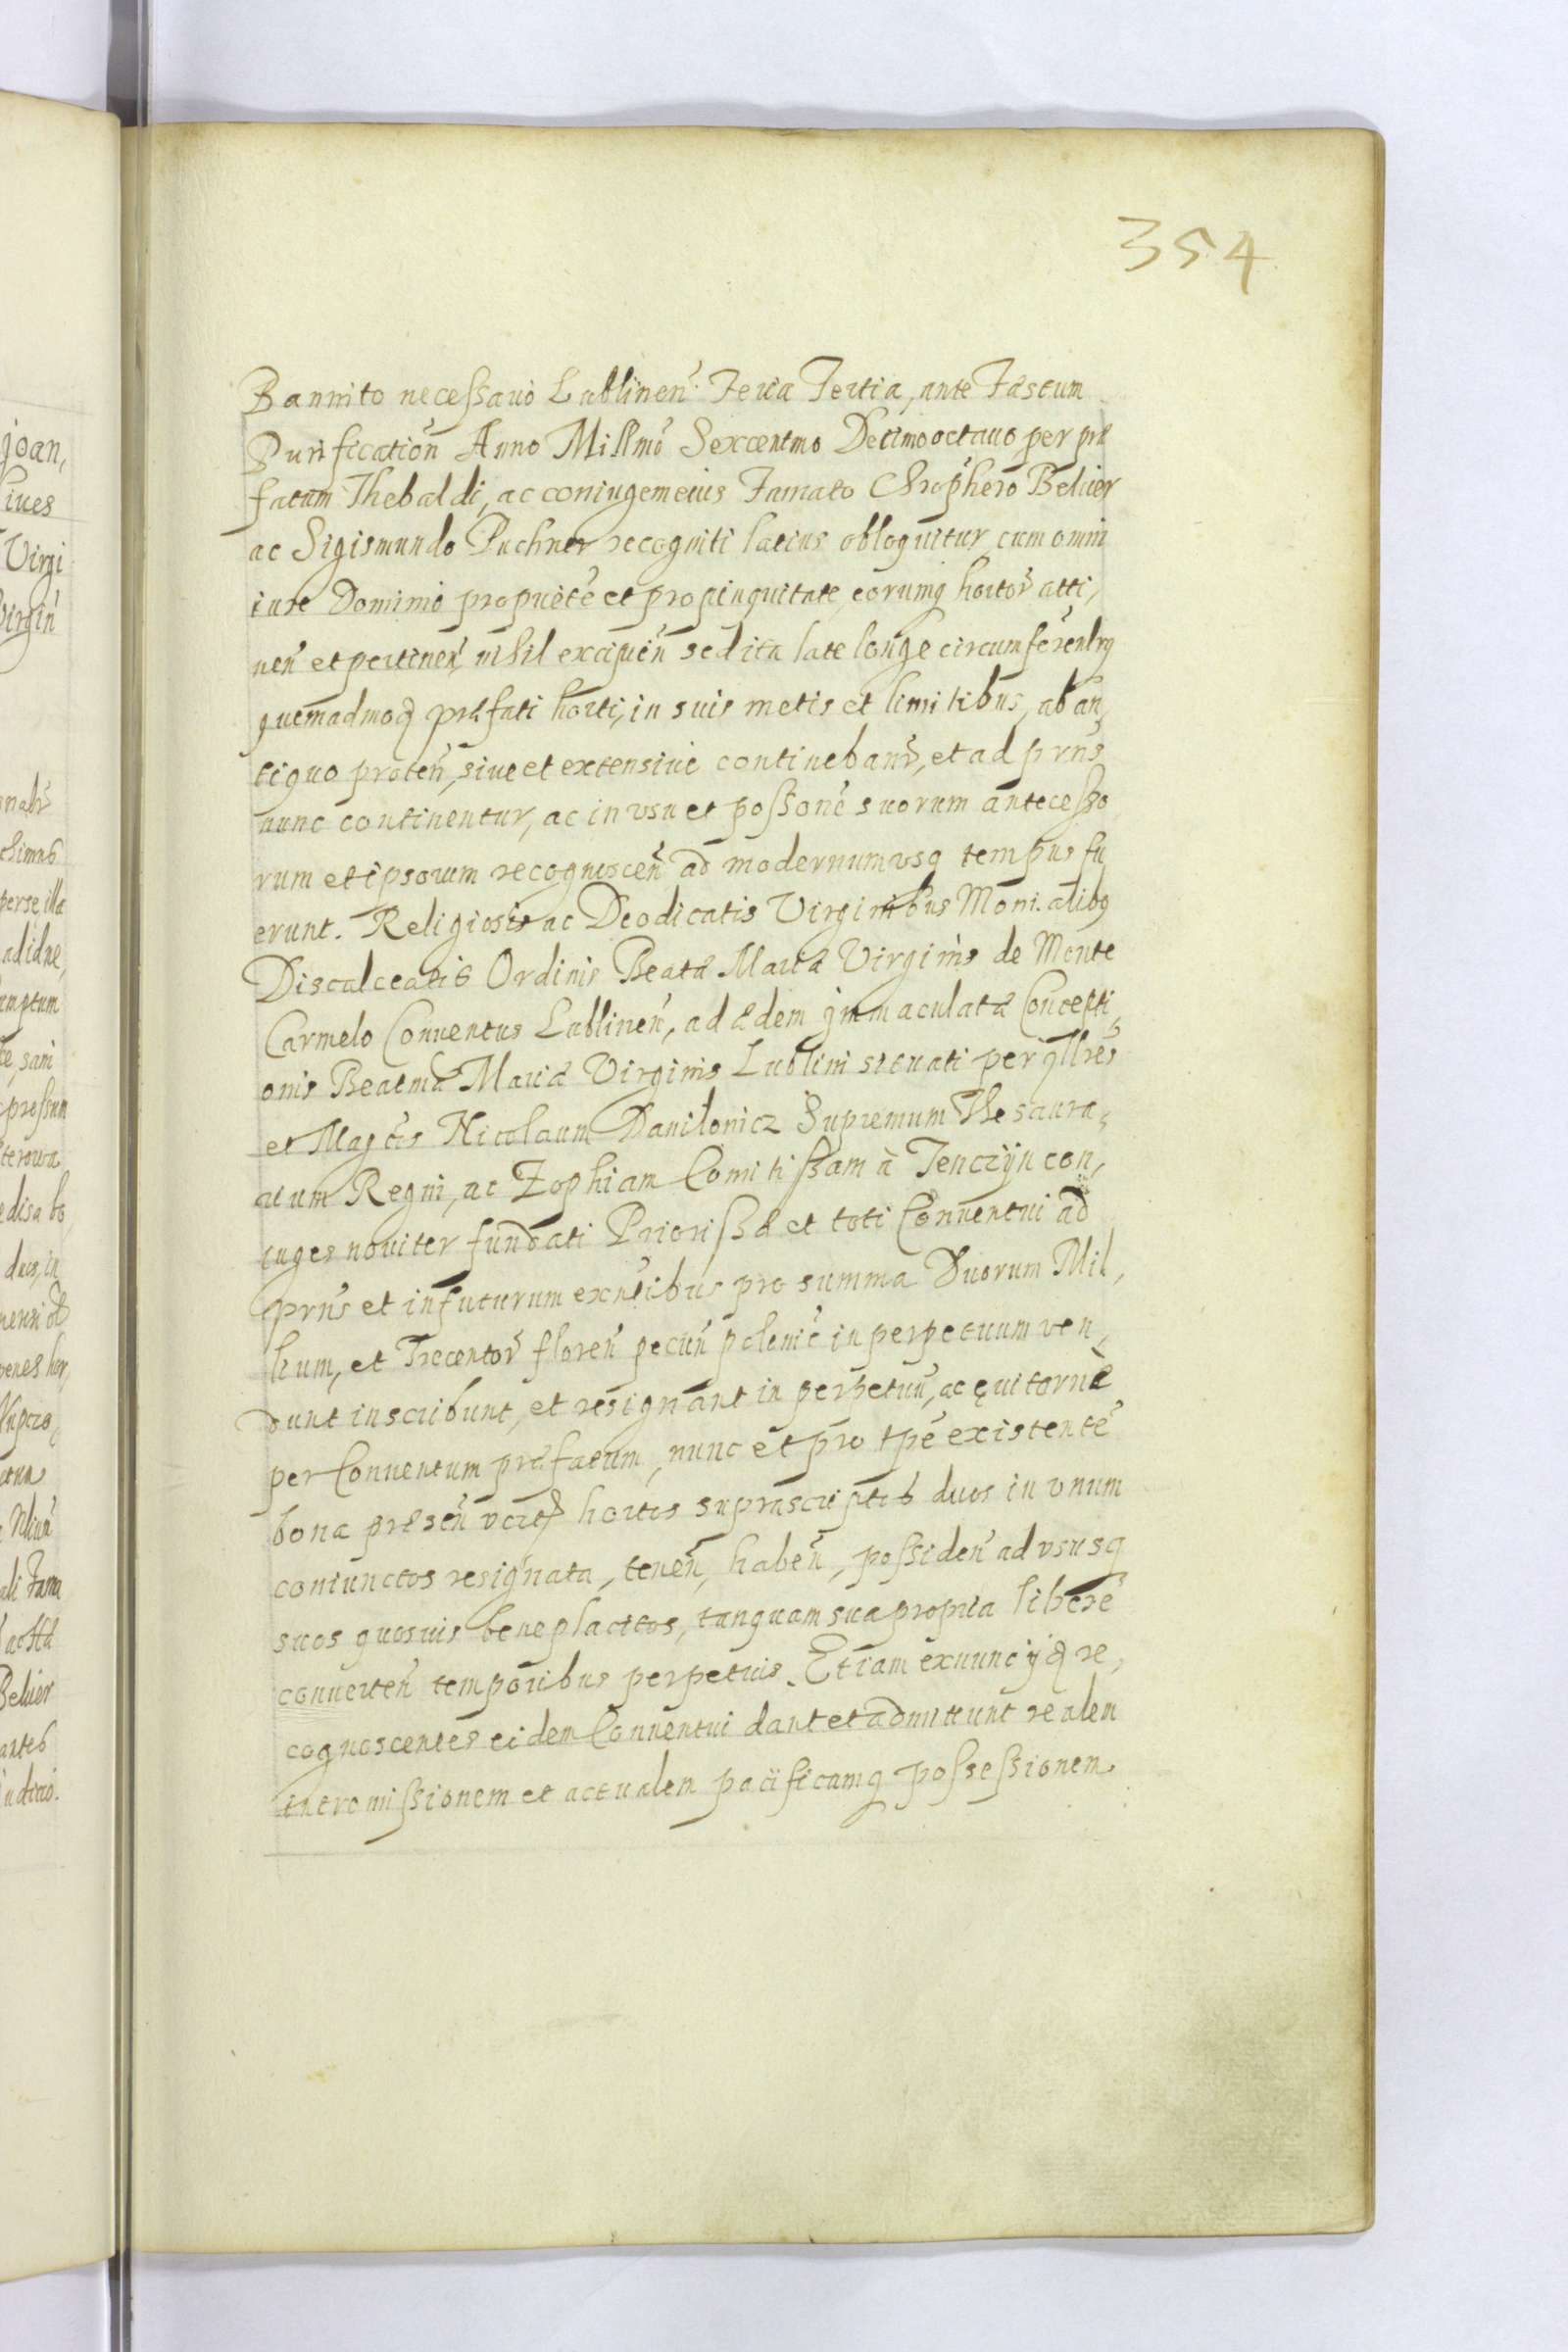 354
Bannito necessario Lublinen̄. Feria Tertia, ante Festum
Purification̄ Anno Millmō Sexcentmo Decimooctauo per præ
fatum Thebaldi, ac coniugem eius Famato Chrophero Beluer
ac Sigismundo Puchner recogniti latius obloquitur, cum omni
iure Dominio proprietē et propinquitate, eorumq hortor̄ atti,
nen̄ et pertinen̄, nihil excipien̄ sed ita late longe circumferentrq
quemadmod præfati horti, in suis metis et limitibus, ab an,
tiquo proten̄, siue et extensiue continebant̄, et ad prn̄s
nunc continentur, ac in vsu et possonē suorum antecesso
rum et ipsorum recognoscen̄ ad modernum vsq tempus fu
erunt. Religiosis ac Deodicatis Virginibus Monialibq
Discalceatis Ordinis Beatæ Mariæ Virginis de Monte
Carmelo Conuentus Lublinen̄, ad ædem jmmaculatæ Concepti,
onis Beatmæ Mariæ Virginis Lublini situati per jllres
et Magcos Nicolaum Danilowicz Supremum Thesaura,
rium Regni, ac Zophiam Comitissam à Tenczyn con,
iuges nouiter fundati Priorissæ et toti Conuentui ad
prn̄s et in futurum exn̄tibus pro summa Duorum Mil,
lium, et Trecentor̄ floren̄ pecun̄ polonic̄ in perpetuum ven,
dunt inscribunt, et resignant in perpetuū, ac quitornè
per Conuentum præfatum, nunc et pro tpē existentē
bona præsen̄ hortos suprascriptos duos in vnum
coniunctos resignata, tenen̄, haben̄, possiden̄ ad vsusq
suos quosuis beneplacitos, tanquam sua propria liberè
conuerten̄ temporibus perpetuis. Etiam exnunc ijd re,
cognoscentes eidem Conuentui dant et admittunt realem
intromissionem et actualem pacificamq possessionem
joan,
ciues
Virgi
Virgin̄
perse illa
umptum
disa bo
duos, in
Beluer